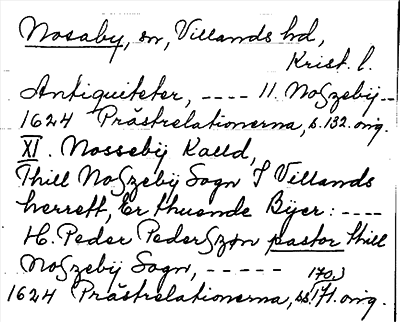 Nosaby, sn, Villands hd,
Krist. l.
Antiquiteter, ---- 11. Noszebÿ --
1624 Prästrelationerna, s. 132. orig.
XI. Nossebÿ Kalld,
Thill Noszebÿ Sogn I Villands
herrett, Er thuende Bÿer: ----
H. Peder Pederszøn pastor thill
Noszebÿ Sogn, -----
170.)
1624 Prästrelationerna, ss 171. orig.